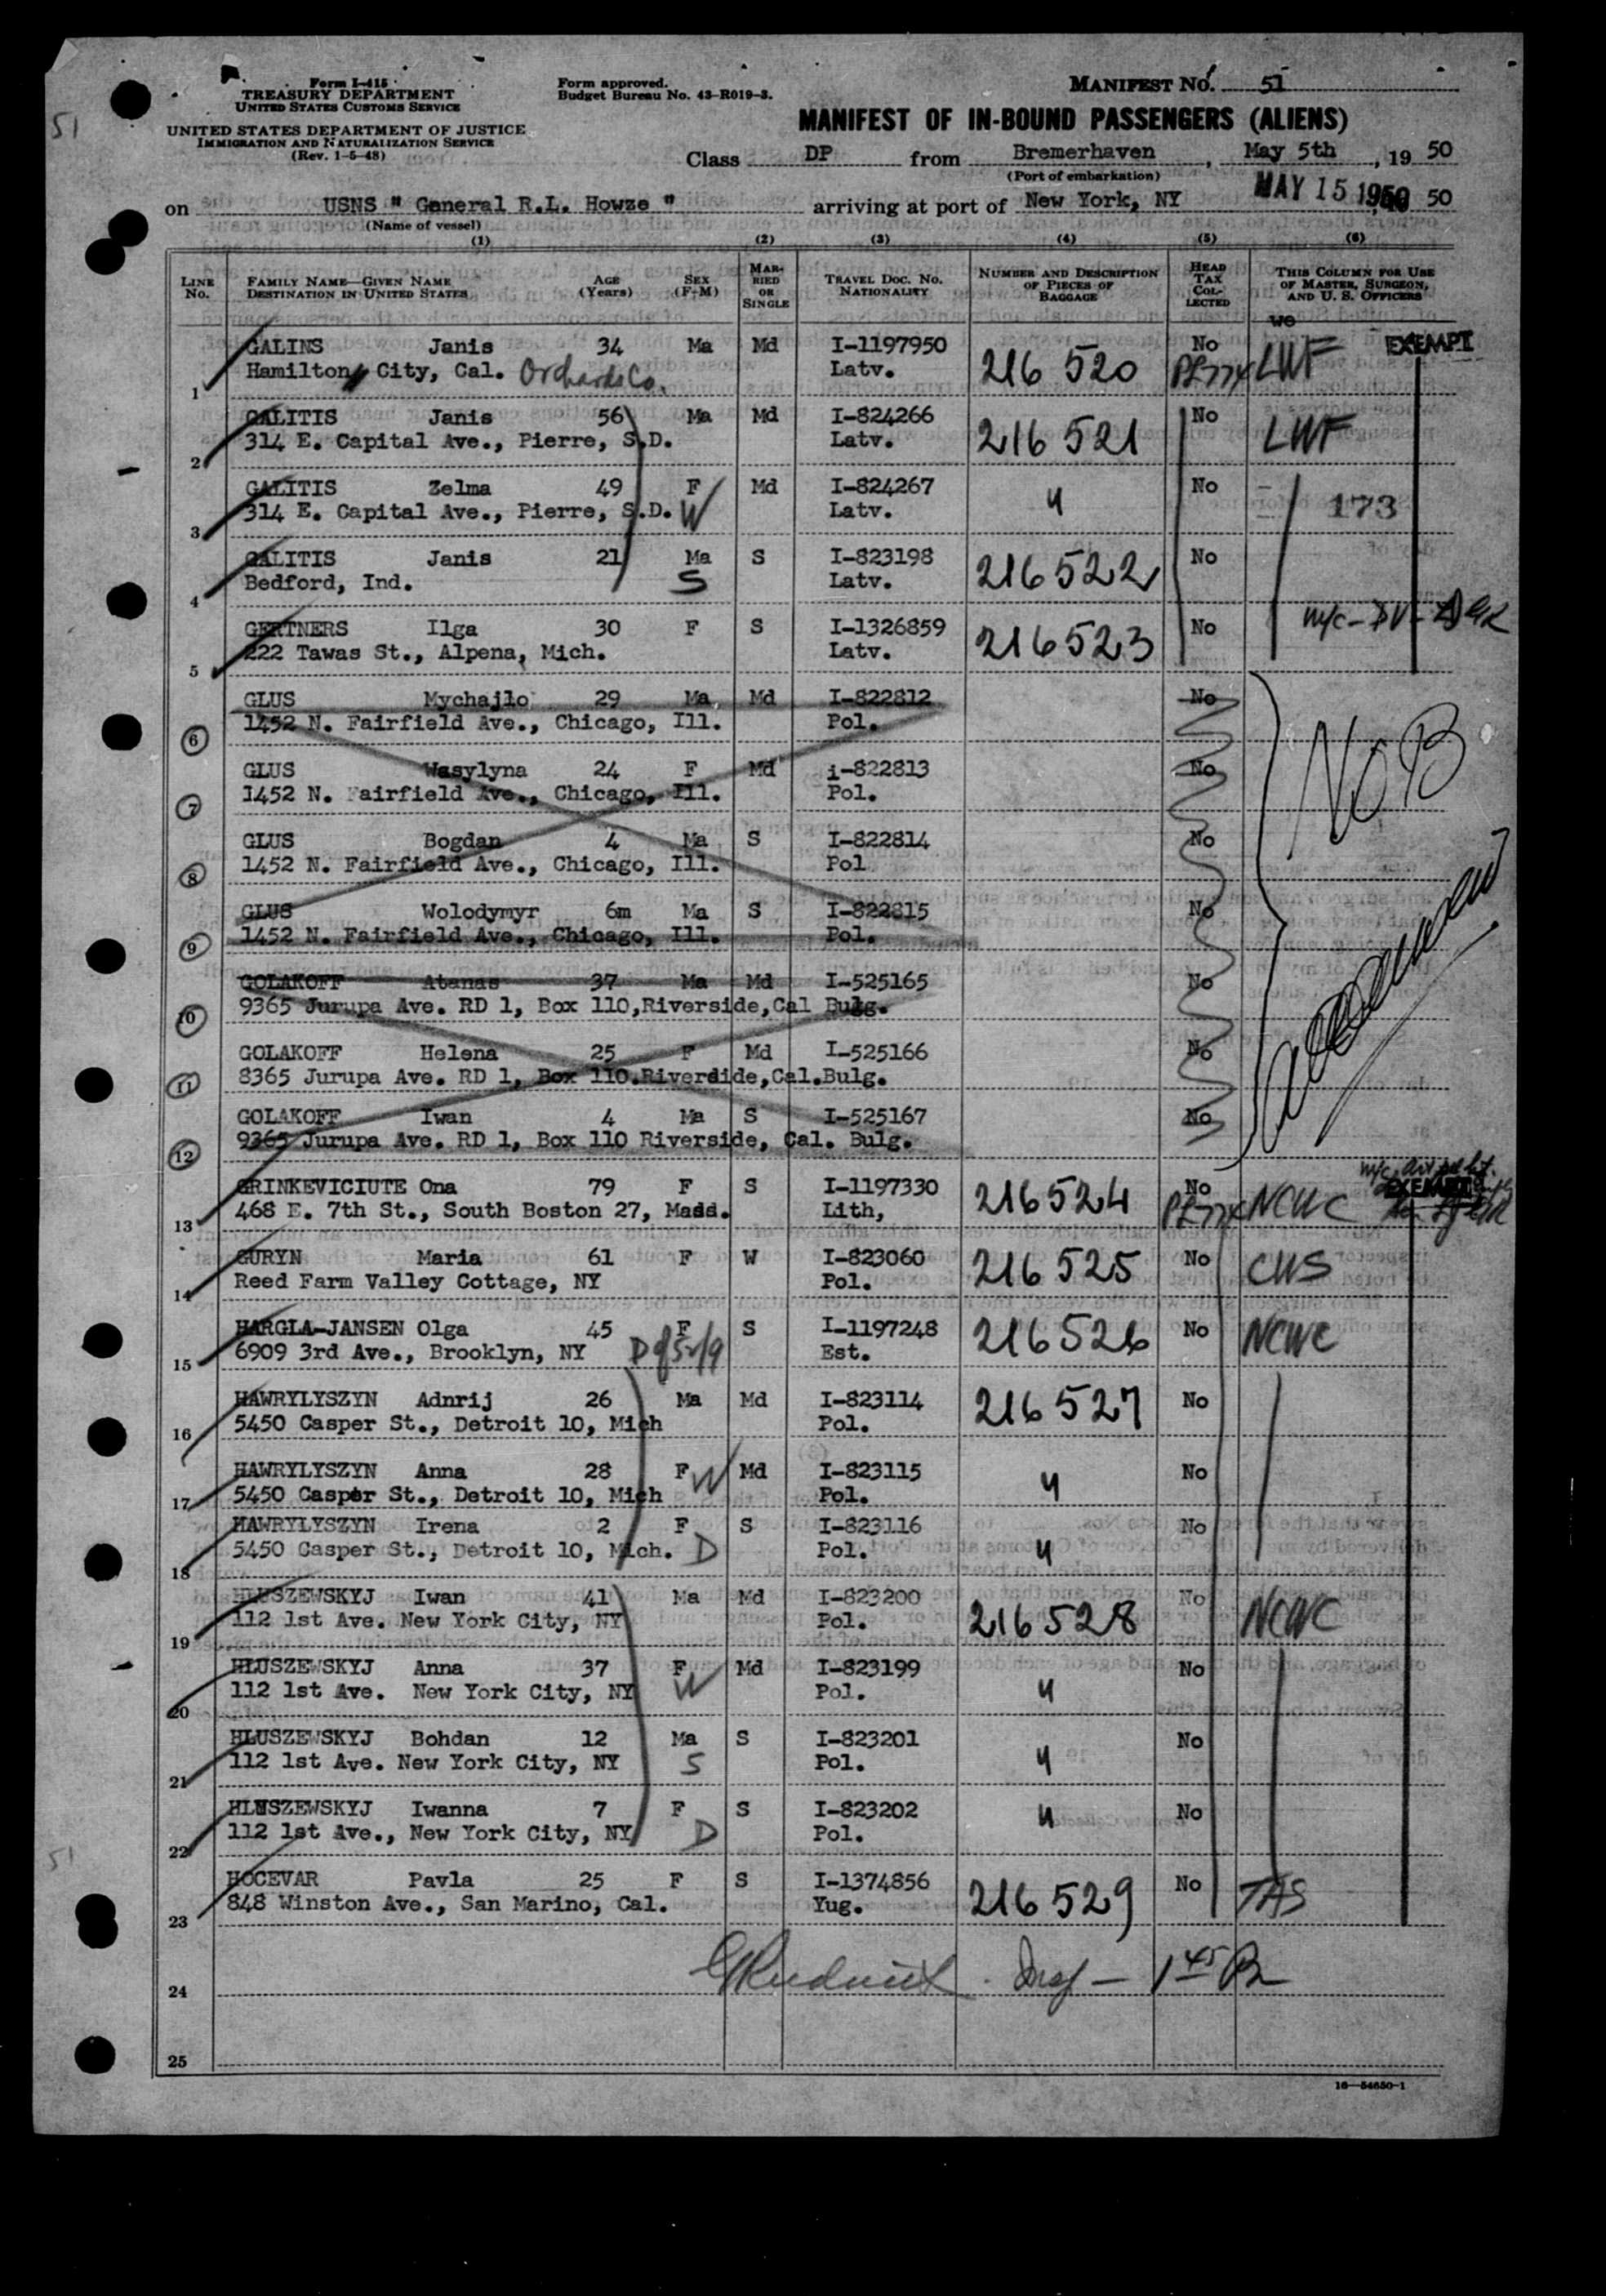 51
Form I-415
TREASURY DEPARTMENT
UNITED STATES CUSTOMS SERVICE
UNITED STATES DEPARTMENT OF JUSTICE
IMMIGRATION AND NATURALIZATION SERVICE
(Rev. 1-5-48)
Form approved.
Budget Bureau No. 43-R019-3.
MANIFEST NO. 51
MANIFEST OF IN-BOUND PASSENGERS (ALIENS)
Class DP from Bremerhaven, May 5th, 19 50
(Port of embarkation)
on USNS " General R.L. Howze " arriving at port of New York, NY MAY 15 1950 50
(Name of vessel)
(1) (2) (3) (4) (5) (6)
LINE No. FAMILY NAME—GIVEN NAME DESTINATION IN UNITED STATES AGE (Years) SEX (F-M) MARRIED OR SINGLE TRAVEL DOC. NO. NATIONALITY NUMBER AND DESCRIPTION OF PIECES OF BAGGAGE HEAD TAX COLLECTED THIS COLUMN FOR USE OF MASTER, SURGEON, AND U. S. OFFICERS
we
GALINS Janis 34 Ma Md I-1197950 No EXEMPT
1 Hamilton City, Cal. Orchards Co. Latv. 216 520 LWF
GALITIS Janis 56 Ma Md I-824266 No
2 314 E. Capital Ave., Pierre, S.D. Latv. 216 521 LWF
GALITIS Zelma 49 F Md I-824267 No
3 314 E. Capital Ave., Pierre, S.D. W Latv. " 173
GALITIS Janis 21 Ma S I-823198 No
4 Bedford, Ind. S Latv. 216522
GERTNERS Ilga 30 F S I-1326859 No
5 222 Tawas St., Alpena, Mich. Latv. 216523
GLUS Mychajlo 29 Ma Md I-822812 No
6 1452 N. Fairfield Ave., Chicago, Ill. Pol. No B
GLUS Wasylyna 24 F Md i-822813 No
7 1452 N. Fairfield Ave., Chicago, Ill. Pol.
GLUS Bogdan 4 Ma S I-822814 No
8 1452 N. Fairfield Ave., Chicago, Ill. Pol
GLUS Wolodymyr 6m Ma S I-822815 No
9 1452 N. Fairfield Ave., Chicago, Ill. Pol.
GOLAKOFF Atanas 37 Ma Md I-525165 No
10 9365 Jurupa Ave. RD 1, Box 110,Riverside,Cal Bulg.
GOLAKOFF Helena 25 F Md I-525166 No
11 8365 Jurupa Ave. RD 1, Box 110.Riverdide,Cal.Bulg.
GOLAKOFF Iwan 4 Ma S I-525167 No
12 9365 Jurupa Ave. RD 1, Box 110 Riverside, Cal. Bulg.
GRINKEVICIUTE Ona 79 F S I-1197330 No EXEMPT
13 468 E. 7th St., South Boston 27, Mass. Lith, 216524 NCWC
GURYN Maria 61 F W I-823060 No
14 Reed Farm Valley Cottage, NY Pol. 216525 CWS
HARGLA-JANSEN Olga 45 F S I-1197248 No
15 6909 3rd Ave., Brooklyn, NY Est. 216526 NCWC
HAWRYLYSZYN Adnrij 26 Ma Md I-823114 No
16 5450 Casper St., Detroit 10, Mich Pol. 216527
HAWRYLYSZYN Anna 28 F W Md I-823115 No
17 5450 Casper St., Detroit 10, Mich Pol. "
HAWRYLYSZYN Irena 2 F S I-823116 No
18 5450 Casper St., Detroit 10, Mich. D Pol. "
HLUSZEWSKYJ Iwan 41 Ma Md I-823200 No
19 112 1st Ave. New York City, NY Pol. 216528 NCWC
HLUSZEWSKYJ Anna 37 F Md I-823199 No
20 112 1st Ave. New York City, NY W Pol. "
HLUSZEWSKYJ Bohdan 12 Ma S I-823201 No
21 112 1st Ave. New York City, NY S Pol. "
HLUSZEWSKYJ Iwanna 7 F S I-823202 No
22 112 1st Ave., New York City, NY D Pol. "
51
HOCEVAR Pavla 25 F S I-1374856 No
23 848 Winston Ave., San Marino, Cal. Yug. 216529 TAS
24
25
16—54650-1